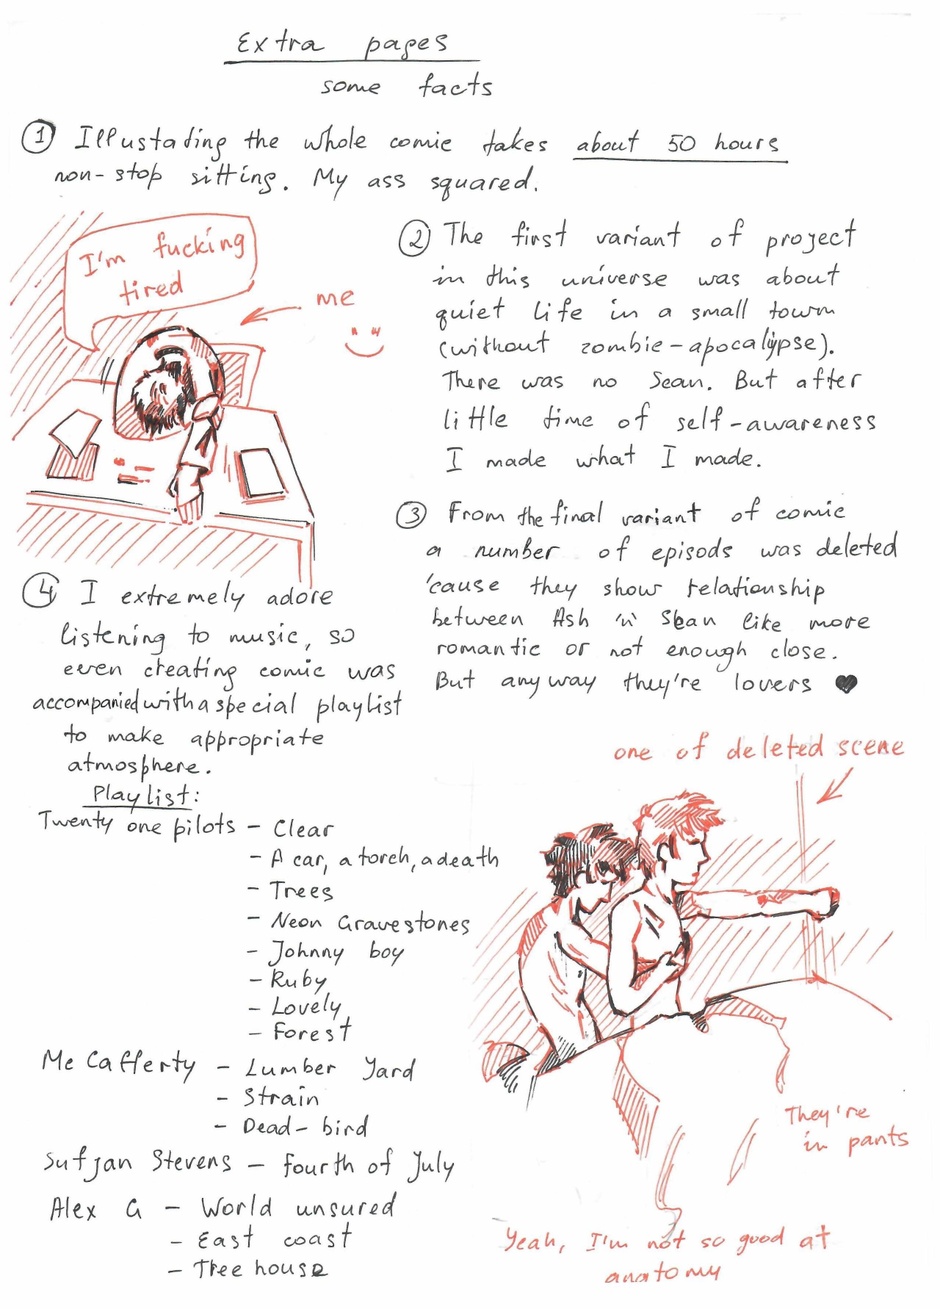 Extra pages
some facts
① Illustading the whole comic takes about 50 hours
non-stop sitting. My ass squared.
I'm fucking
tired
me
② The first variant of project
in this universe was about
quiet life in a small town
(without zombie-apocalypse).
There was no Sean. But after
little time of self-awareness
I made what I made.
③ From the final variant of comic
a number of episods was deleted
'cause they show relationship
between Ash 'n' Sean like more
romantic or not enough close.
But anyway they're lovers ♥
④ I extremely adore
listening to music, so
even creating comic was
accompanied with a special playlist
to make appropriate
atmosphere.
Playlist:
Twenty one pilots – Clear
– A car, a torch, a death
– Trees
– Neon Gravestones
– Johnny boy
– Ruby
– Lovely
– Forest
Mc Cafferty – Lumber Yard
– Strain
– Dead-bird
Sufjan Stevens – fourth of July
Alex G – World unsured
– East coast
– Tree house
one of deleted scene
They're
in pants
Yeah, I'm not so good at
anatomy